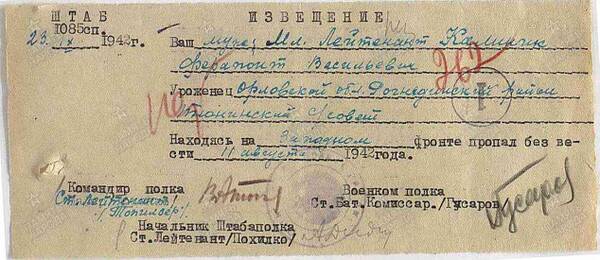 ШТАБ
1085сп.
23. IX 1942г.
ИЗВЕЩЕНИЕ
Ваш муж Мл. Лейтенант
Ферапонт Васильевич
Уроженец Орловской обл. Рогнединский район
Находясь на Западном фронте пропал без ве-
сти 11 августа 1942года.
262
Командир полка
Ст. Лейтенант
Военком полка
Ст.Бат.Комиссар./Гусаров/
Гусаров
Начальник Штабаполка
Ст.Лейтевант/Похилко/